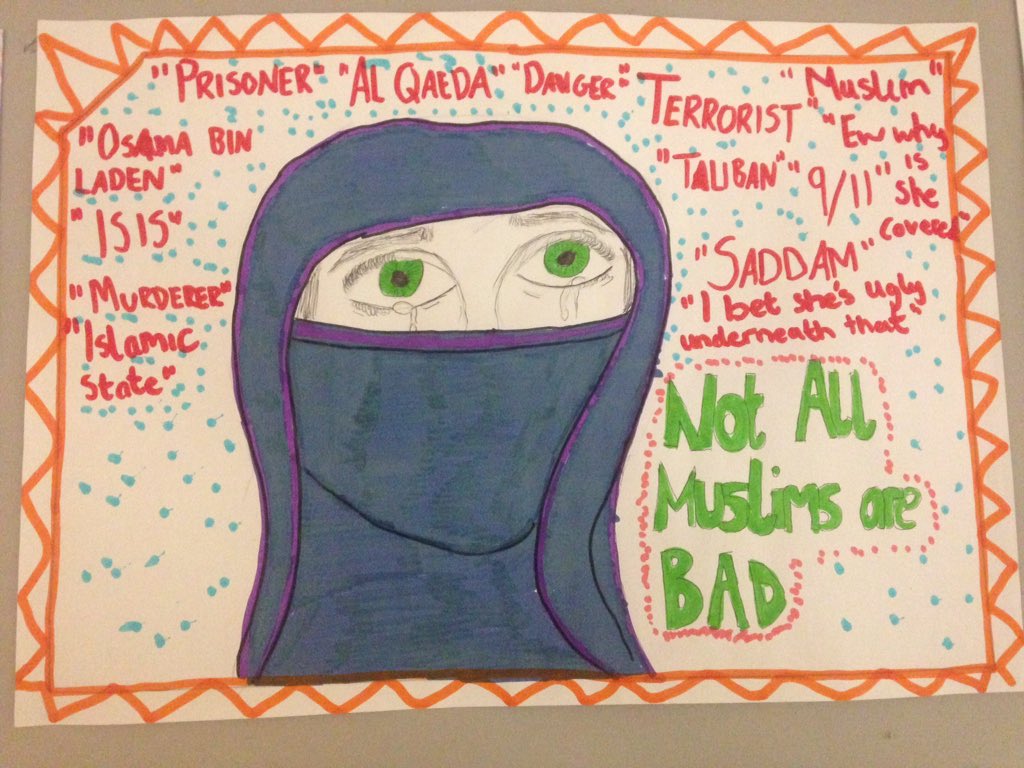 "PRISONER" "AL QAEDA" "DANGER"
"OSAMA BIN
LADEN"
"ISIS"
"MURDERER"
"Islamic
State"
TERRORIST
"TALIBAN"
"9/11"
"Muslim"
"Ew why
is
she
covered"
"SADDAM"
"I bet she's ugly
underneath that"
Not All
Muslims are
BAD